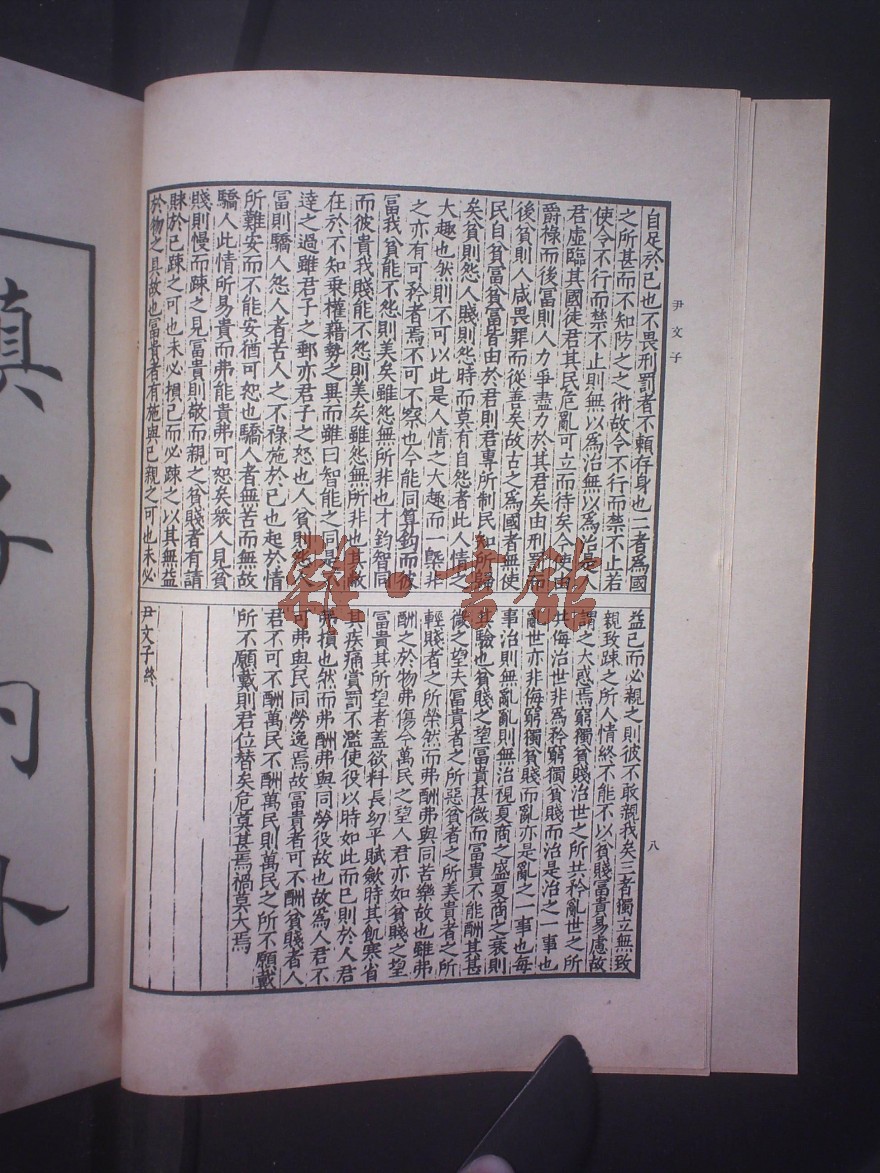 尹文子
自足於己也不畏刑罰者不賴存身也二者為國
之所甚而不知防之之術故令不行而禁不止若
使令不行而禁不止則無以為治無以為治是人
君虛臨其國徒君其民危亂可立而待矣今使由
爵祿而後富則人力爭盡力於其君矣由刑罰而
後貧則人咸畏罪而從善矣故古之為國者無使
民自貧富貧富皆由於君則君專所制民知所歸
矣貧則怨人賤則怨時而莫有自怨者此人情之
大趣也然則不可以此是人情之大趣而一槩非
之亦有可矜者焉不可不察也今能同算鈞而彼
富我貧能不怨則美矣雖怨無所非也才鈞智同
而彼貴我賤能不怨則美矣雖怨無所非也其敝
在於不知乘權藉勢之異而雖曰智能之同是不
達之過雖君子之郵亦君子之怒也人貧則怨人
富則驕人怨人者苦人之不祿施於己也起於情
所難安而不能安猶可恕也驕人者無苦而無故
驕人此情所易貴而弗能貴弗可恕矣衆人見貧
賤則慢而踈之見富貴則敬而親之貧賤者有請
賕於己踈之可也未必損己而必踈之以其無益
於物之具故也富貴者有施與己親之可也未必
益己而必親之則彼不敢親我矣三者獨立無致
親致踈之所人情終不能不以貧賤富貴易慮故
謂之大惑焉窮獨貧賤治世之所共矜亂世之所
共侮治世非為矜窮獨貧賤而治是治之一事也
亂世亦非侮窮獨貧賤而亂亦是亂之一事也每
事治則無亂亂則無治視夏商之盛夏商之衰則
其驗也貧賤之望富貴甚微而富貴不能酬其甚
微之望夫富貴者之所惡貧者之所美貴者之所
輕賤者之所榮然而弗酬弗與同苦樂故也雖弗
酬之於物弗傷今萬民之望人君亦如貧賤之望
富貴其所望者蓋欲料長幼平賦斂時其飢寒省
其疾痛賞罰不濫使役以時如此而已則於人君
弗損也然而弗酬弗與同勞役故也故為人君不
可弗與民同勞逸焉故富貴者可不酬貧賤者人
君不可不酬萬民不酬萬民則萬民之所不願戴
所不願戴則君位替矣危莫甚焉禍莫大焉
尹文子終
八
雜·書館
慎子內外